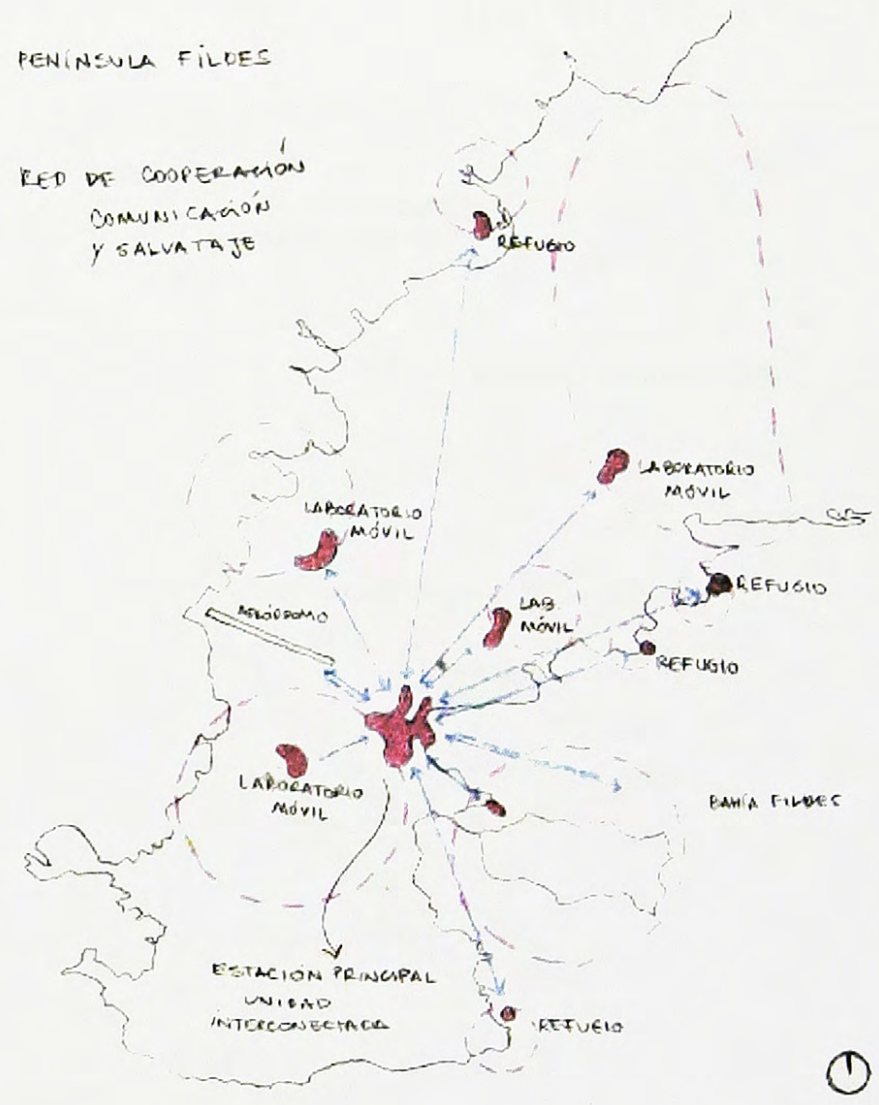 PENÍNSULA FILDES
RED DE COOPERACIÓN
COMUNICACIÓN
Y SALVATAJE
REFUGIO
LABORATORIO
MÓVIL
LABORATORIO
MÓVIL
REFUGIO
LAB
MÓVIL
AERÓDROMO
REFUGIO
LABORATORIO
MÓVIL
BAHÍA FILDES
ESTACIÓN PRINCIPAL
UNIDAD
INTERCONECTADA
REFUGIO